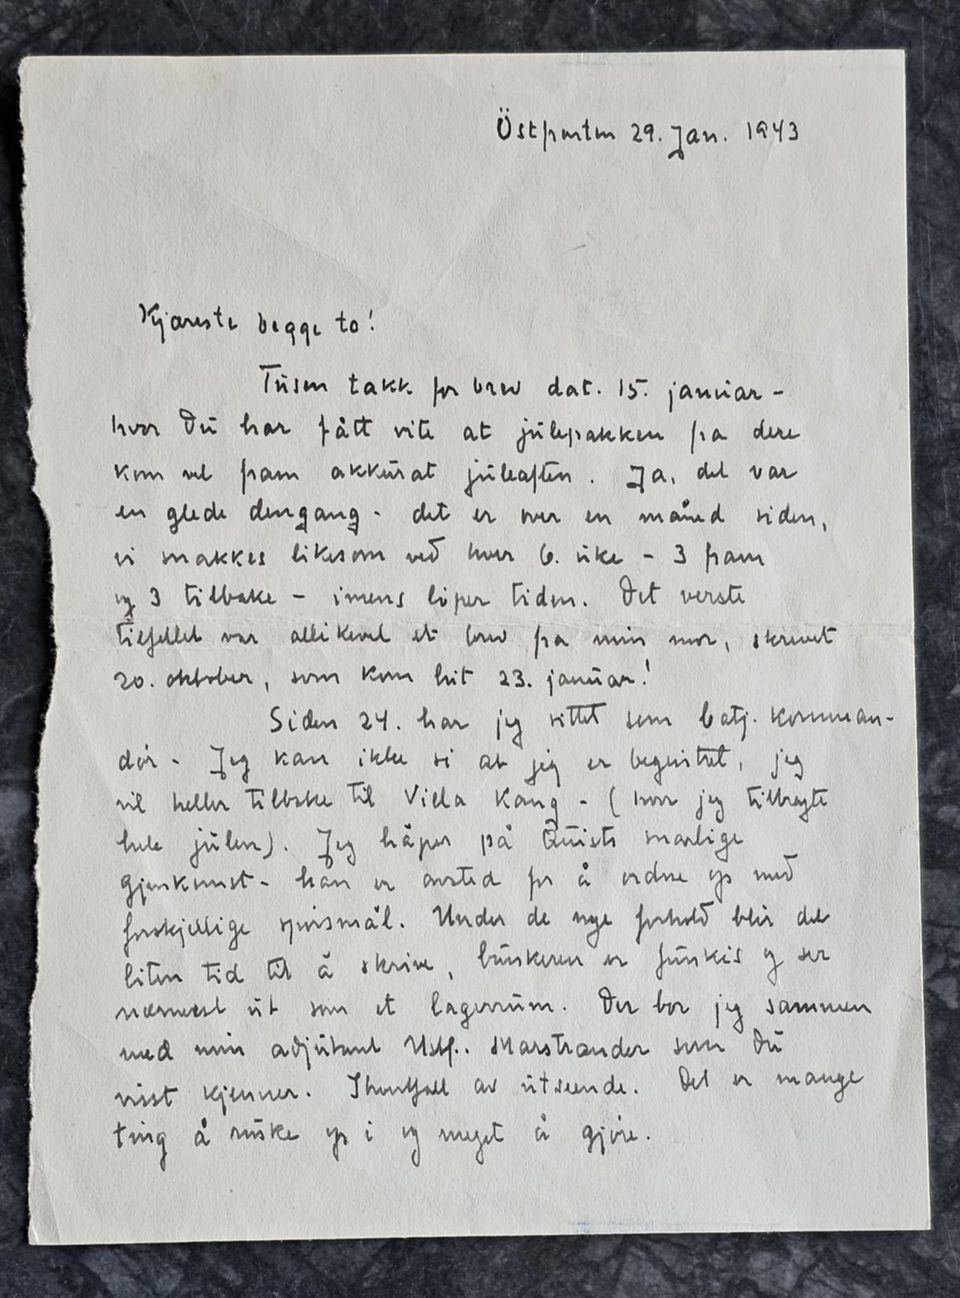 Östfronten 29. Jan. 1943
Kjæreste begge to!
Tusen takk for brev dat. 15. januar -
hvor Du har fått vite at julepakken fra dere
kom vel fram akkurat juleaften. Ja, det var
en glede dengang - det er over en måned siden,
vi snakkes likesom ved hver 6. uke - 3 fram
og 3 tilbake - imens löper tiden. Det verste
tilfellet var allikevel et brev fra min mor, skrevet
20. oktober, som kom hit 23. januar!
Siden 24. har jeg sittet som batj. komman-
dör. Jeg kan ikke si at jeg er begeistret, jeg
vil heller tilbake til Villa Kang - (hvor jeg tilbragte
hele julen). Jeg håper på Quists snarlige
gjenkomst - han er avsted for å ordne op med
forskjellige spörsmål. Under de nye forhold blir det
liten tid til å skrive, bunkeren er funkis og ser
nærmest ut som et lagerrum. Der bor jeg sammen
med min adjutant Ustf. Marstrander som Du
visst kjenner. Ihvertfall av utseende. Det er mange
ting å ruske op i og meget å gjöre.